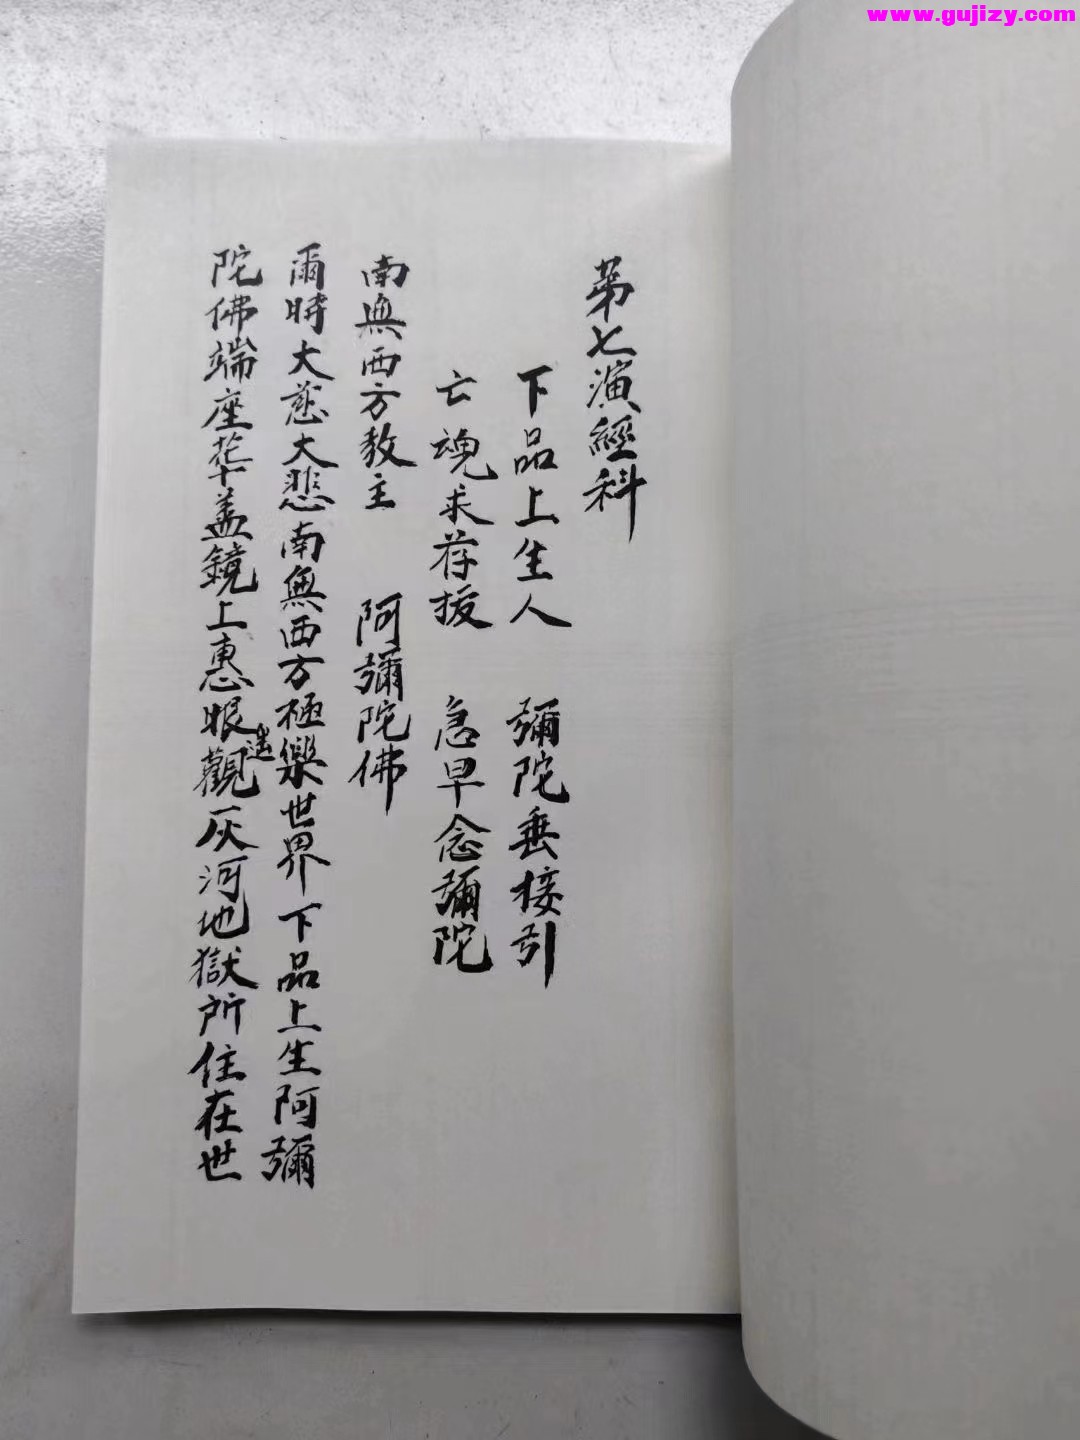 www.gujizy.com
第七演經科
下品上生人 彌陀垂接引
亡魂求荐拔 急早念彌陀
南無西方教主 阿彌陀佛
爾時大慈大悲南無西方極樂世界下品上生阿彌
陀佛端座華盖鏡上惠眼遙觀灰河地獄所住在世